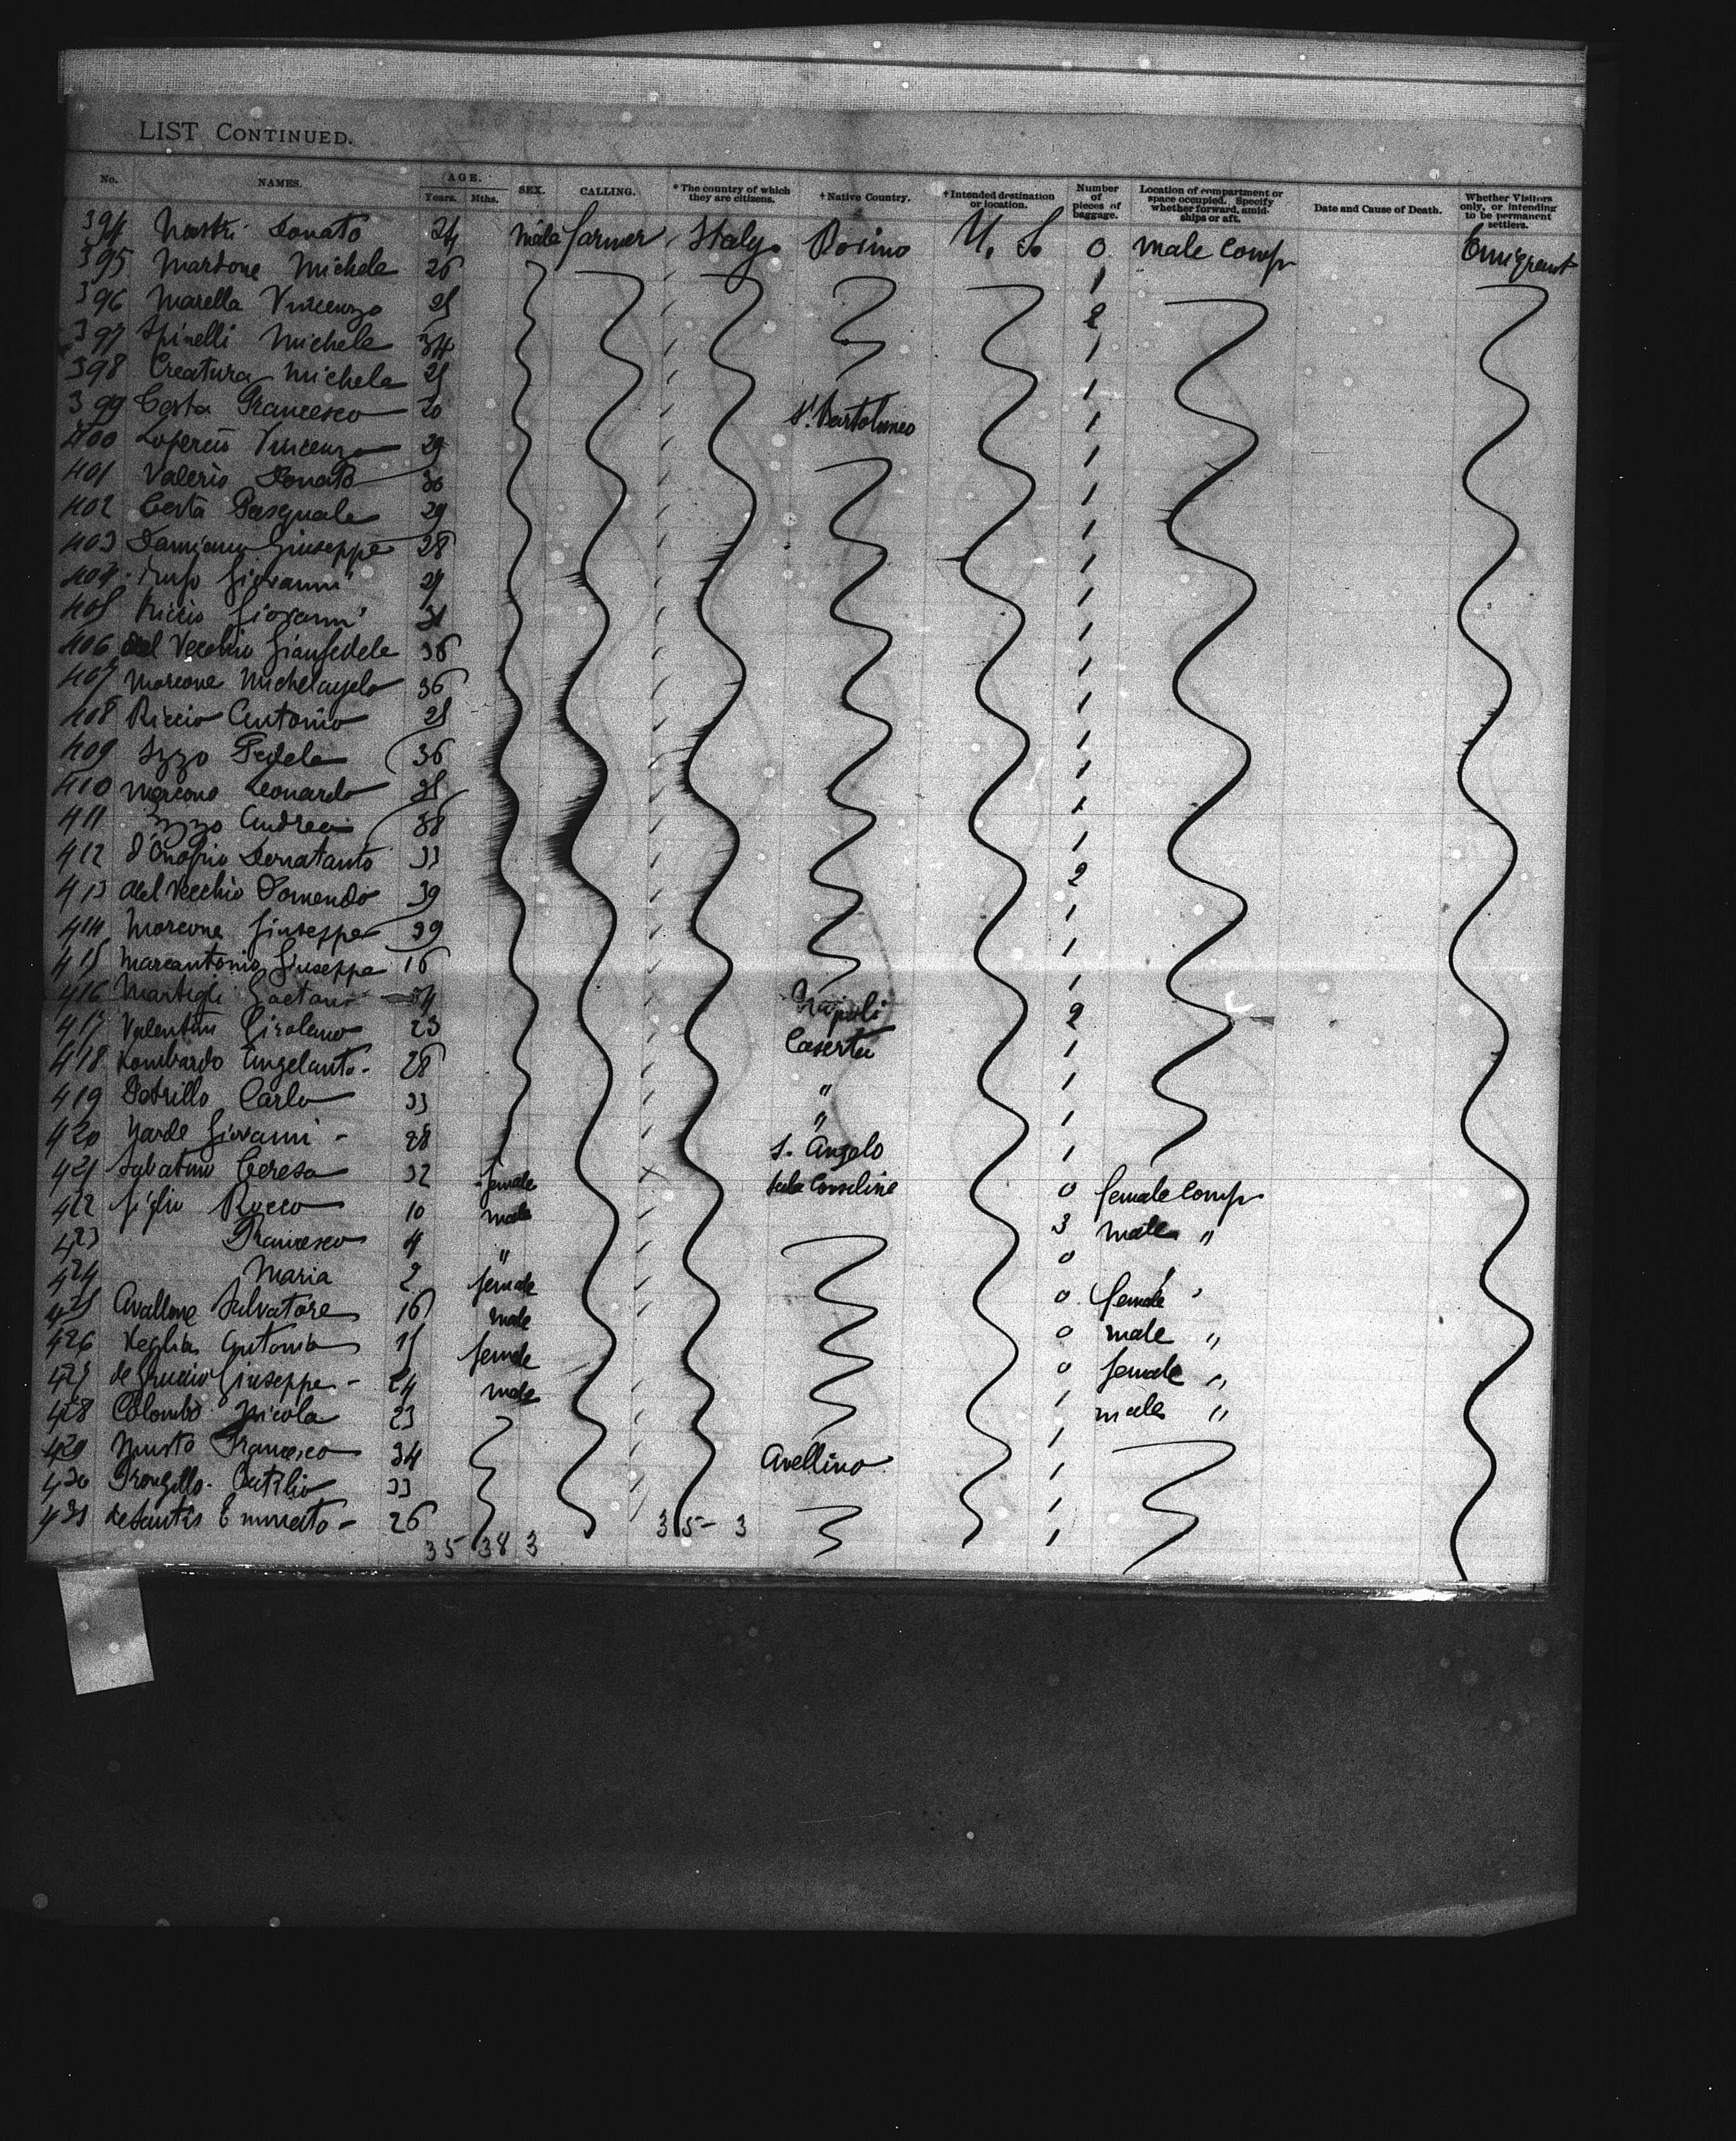 LIST CONTINUED.
No. NAMES. AGE. Years. Mths. SEX. CALLING. * The country of which they are citizens. + Native Country. + Intended destination or location. Number of pieces of baggage. Location of compartment or space occupied. Specify whether forward, amidships or aft. Date and Cause of Death. Whether Visitors only, or intending to be permanent settlers.
394 Donato 24 male farmer Italy Boiano U. S. 0 male comp Emigrant
395 Mardone Michele 26 1
396 Marella Vincenzo 25 2
397 Spinelli Michele 34 1
398 Creatura Michele 25 1
399 Costa Francesco 20 S. Bartolomeo 1
400 Vincenzo 29 1
401 Valerio Donato 30 1
402 Costa Pasquale 29 1
403 Damiano Giuseppe 28 1
404 Giovanni 1
405 Riccio Giovanni 31 1
406 del Vecchio Gianfedele 36 1
407 Marcone Michelangelo 36 1
408 Riccio Antonio 25 1
409 Izzo Fedele 36 1
410 Marcone Leonardo 35 1
411 Izzo Andrea 38 1
412 d'Onofrio Donatanto 33 2
413 del Vecchio 39 1
414 Marcone Giuseppe 39 1
415 Marcantonio Giuseppe 16 1
416 Gaetano 34 Napoli 2
417 Valentini Girolamo 23 Caserta 1
418 Lombardo Angelanto- 28 " 1
419 Petrillo Carlo 33 " 1
420 Narde Giovanni - 28 S. Angelo 1
421 Sabatino Teresa 32 female Sala Consilina 0 female comp
422 figlio Rocco 10 male 3 male "
423 Francesco 4 " 0
424 Maria 2 female 0 female "
425 Avallone Salvatore 16 male 0 male "
426 Veglia Antonia 15 female 0 female "
427 Giuseppe - 24 male 1 male "
428 Colombo Nicola 23 1
429 Musto Francesco 34 Avellino 1
430 33 1
431 de Santis 26 1
35 38 3 35 - 3